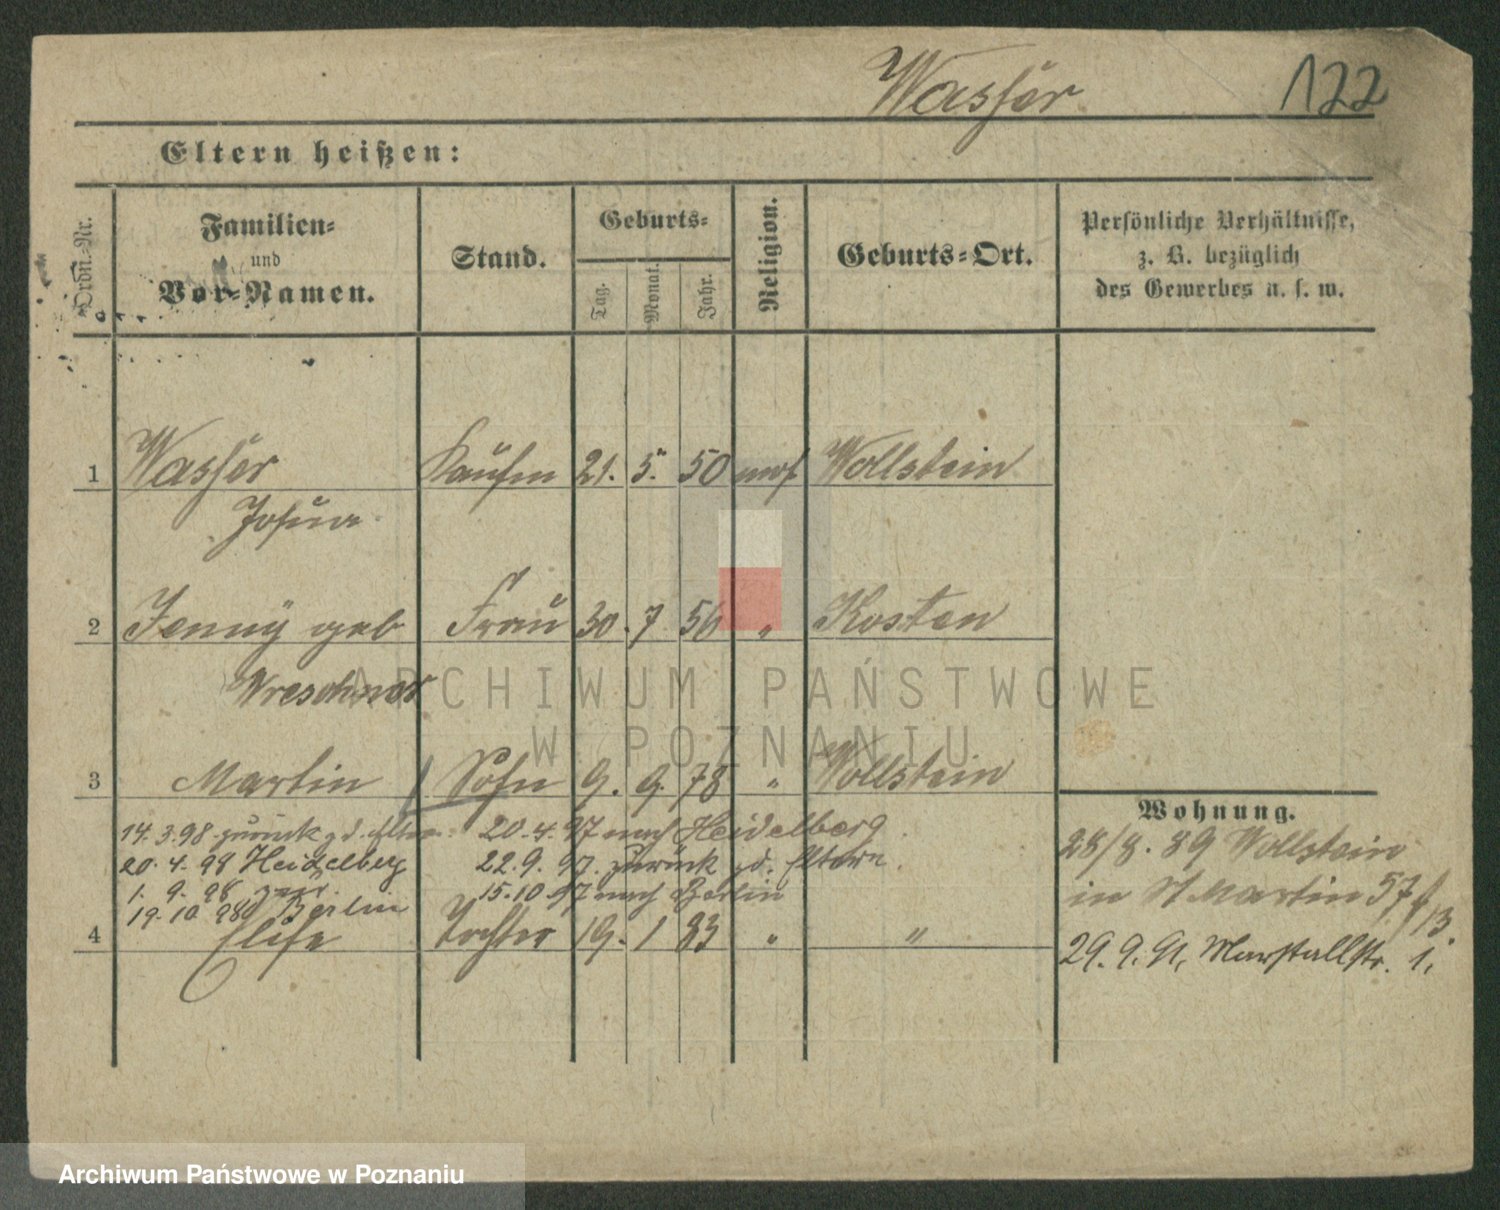 Wasser 122
Eltern heißen:
Ordn.-Nr.
Familien-
und
Vor-Namen.
Stand.
Geburts-
Tag.
Monat.
Jahr.
Religion.
Geburts-Ort.
Persönliche Verhältnisse,
z. B. bezüglich
des Gewerbes u. s. w.
1 Wasser Kaufm 21. 5. 50 mos Wollstein
Josua
2 Jenny geb Frau 30. 7 56 " Kosten
Wreschner
ARCHIWUM PAŃSTWOWE
W POZNANIU
3 Martin Sohn 9. 9. 78 " Wollstein
14.3.98 zurück z. d. Eltern 20.4.97 nach Heidelberg
20.4.98 Heidelberg 22.9.97. zurück z d. Eltern.
1. 9. 98 zur. 15.10 97 nach Berlin
19.10 98 Berlin
4 Elise Tochter 19. 1 83 " "
Wohnung.
28/8. 89 Wollstein
in St Martin 57
13.
29. 9. 91, Marstallstr. 1.
Archiwum Państwowe w Poznaniu